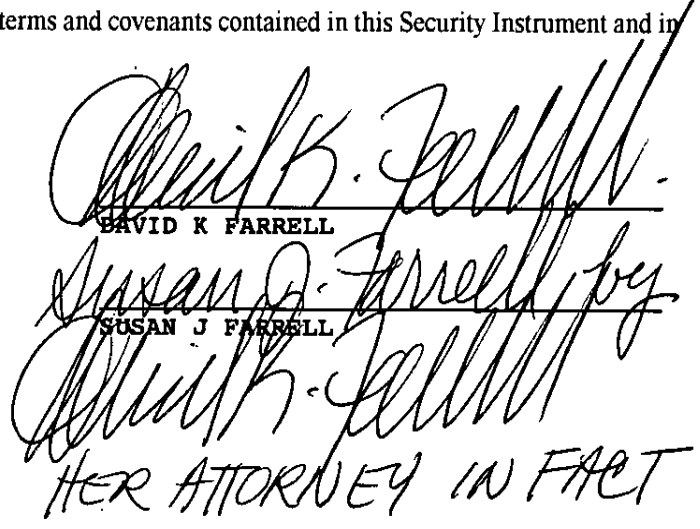 terms and covenants contained in this Security Instrument and in
David K. Farrell
DAVID K FARRELL
Susan J. Farrell, by
SUSAN J FARRELL
David K. Farrell
HER ATTORNEY IN FACT